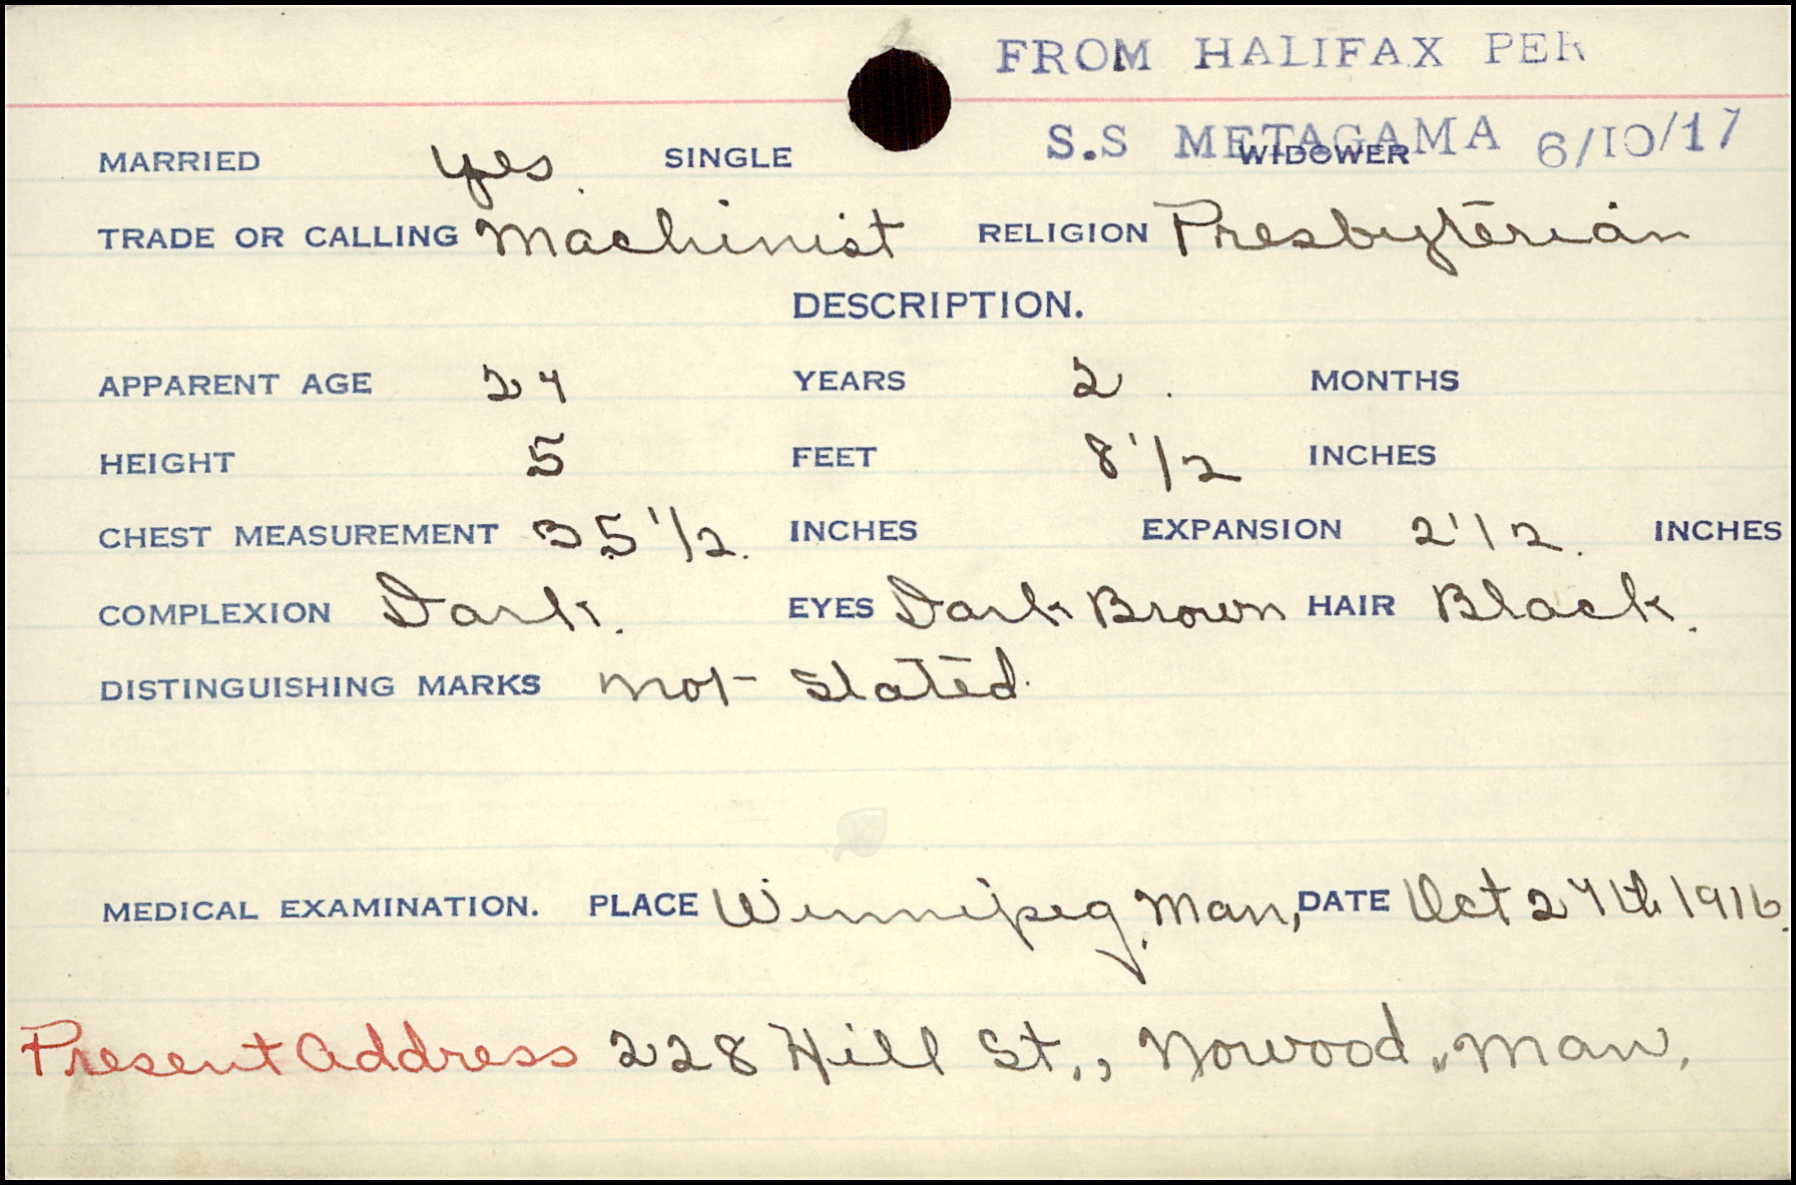 FROM HALIFAX PER
S.S METAGAMA 6/10/17
MARRIED yes. SINGLE WIDOWER
TRADE OR CALLING Machinist RELIGION Presbyterian
DESCRIPTION.
APPARENT AGE 24 YEARS 2. MONTHS
HEIGHT 5 FEET 8 1/2 INCHES
CHEST MEASUREMENT 35 1/2. INCHES EXPANSION 2 1/2. INCHES
COMPLEXION Dark. EYES Dark Brown HAIR Black.
DISTINGUISHING MARKS not stated.
MEDICAL EXAMINATION. PLACE Winnipeg, Man, DATE Oct 24th 1916.
Present Address 228 Hill St., Norwood, Man.